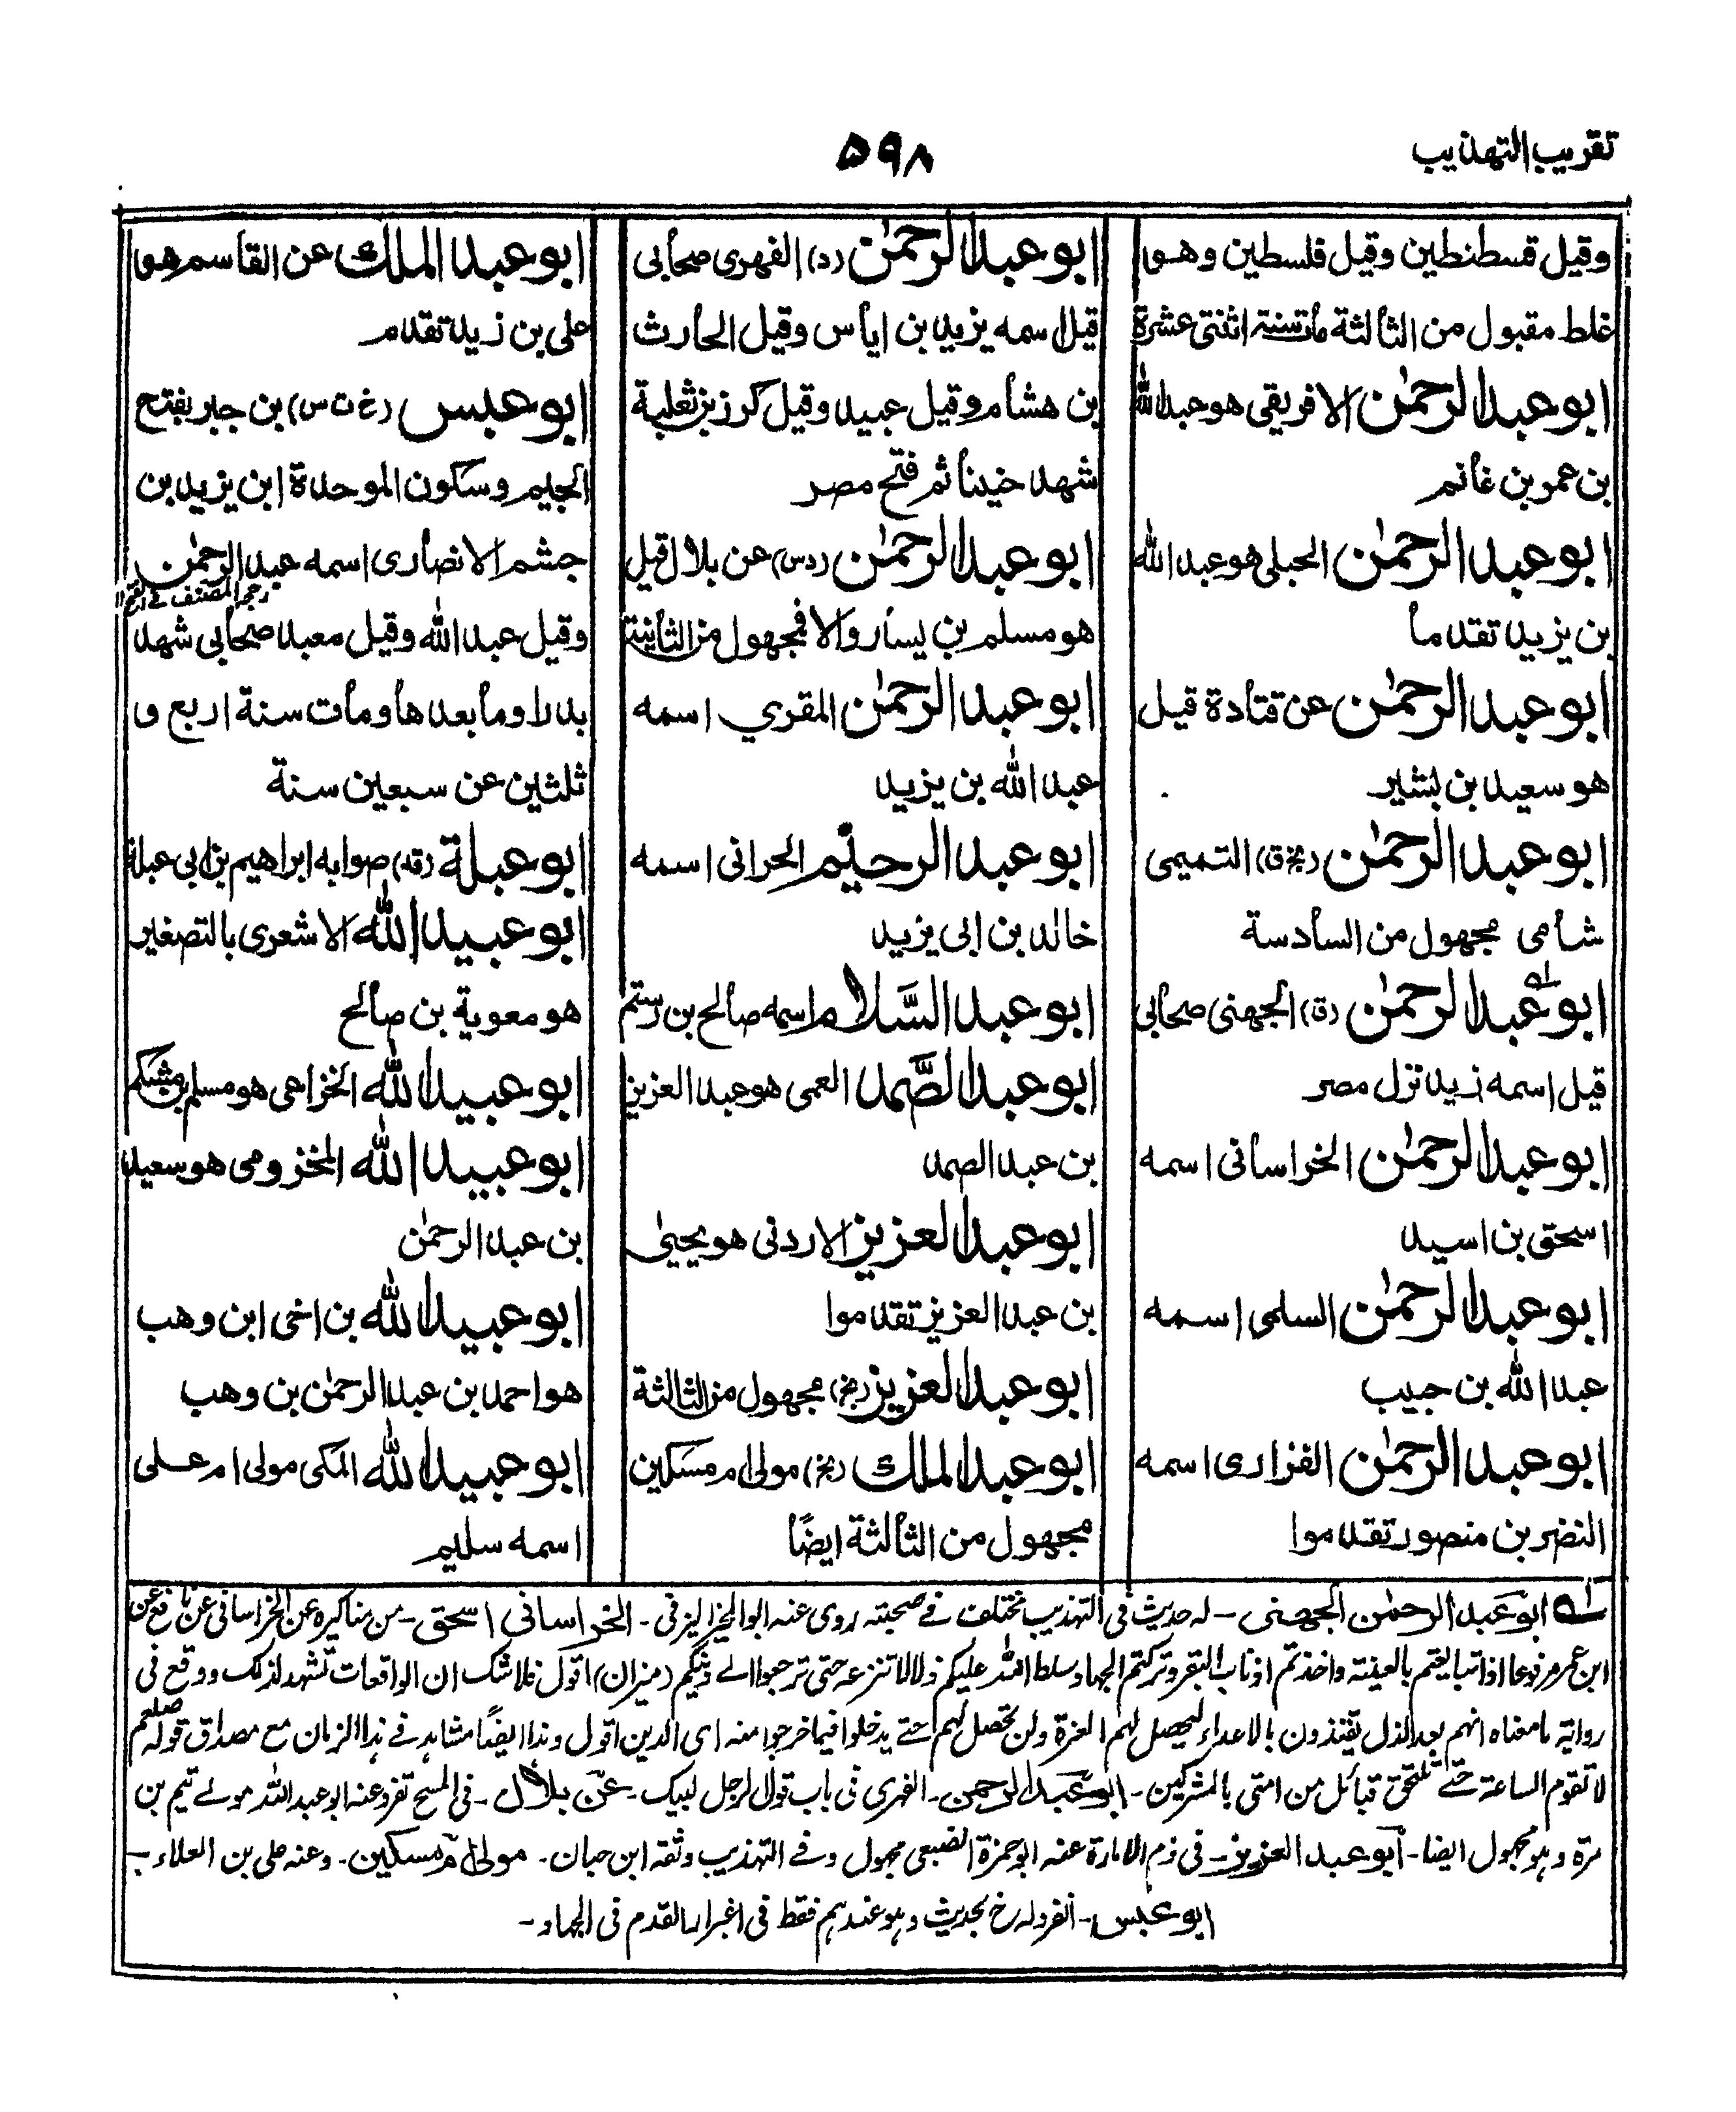 تقريب التهذيب
۵۹۸
وقيل قسطنطين وقيل فلسطين وهو
غلط مقبول من الثالثة مات سنة اثنتى عشرة
ابو عبد الرحمٰن الافريقى هو عبد الله
بن عمر بن غانم
ابو عبد الرحمٰن الحبلى هو عبد الله
بن يزيد تقدما
ابو عبد الرحمٰن عن قتادة قيل
هو سعيد بن بشير
ابو عبد الرحمٰن (بخ ق) التميمى
شامى مجهول من السادسة
ابو عبد الرحمٰن (ق) الجهنى صحابى
قيل اسمه زيد نزل مصر
ابو عبد الرحمٰن الخراسانى اسمه
اسحق بن اسيد
ابو عبد الرحمٰن السلمى اسمه
عبد الله بن حبيب
ابو عبد الرحمٰن الفزارى اسمه
النضر بن منصور تقدموا
ابو عبد الرحمٰن (د) الفهرى صحابى
قيل اسمه يزيد بن اياس وقيل الحارث
بن هشام وقيل عبيد وقيل كرز بن ثعلبة
شهد حنينا ثم فتح مصر
ابو عبد الرحمٰن (دس) عن بلال قيل
هو مسلم بن يسار والا فمجهول من الثانية
ابو عبد الرحمٰن المقري اسمه
عبد الله بن يزيد
ابو عبد الرحيم الحرانى اسمه
خالد بن ابى يزيد
ابو عبد السَّلام اسمه صالح بن رستم
ابو عبد الصَّمد العمى هو عبد العزيز
بن عبد الصمد
ابو عبد العزيز الاردنى هو يحيىٰ
بن عبد العزيز تقدموا
ابو عبد العزيز (بخ) مجهول من الثالثة
ابو عبد الملك (بخ) مولى ام مسكين
مجهول من الثالثة ايضًا
ابو عبد الملك عن القاسم هو
على بن زيد تقدم
ابو عبس (خ ت س) بن جبر بفتح
الجيم وسكون الموحدة ابن يزيد بن
جشم الانصارى اسمه عبد الرحمٰن
وقيل عبد الله وقيل معبد صحابى شهد
بدرا وما بعدها ومات سنة اربع و
ثلثين عن سبعين سنة
ابو عبلة (قد) صوابه ابراهيم بن ابى عبلة
ابو عبيد الله الاشعرى بالتصغير
هو معوية بن صالح
ابو عبيد الله الخزاعى هو مسلم بن مشكم
ابو عبيد الله المخزومى هو سعيد
بن عبد الرحمٰن
ابو عبيد الله بن اخى ابن وهب
هو احمد بن عبد الرحمٰن بن وهب
ابو عبيد الله المكى مولى ام على
اسمه سليم
له ابو عبد الرحمٰن الجهنى - له حديث فى التهذيب مختلف فے صحبته روى عنه ابو الخير اليزنى - الخراسانى اسحق - من مناكيره عن الخراسانى عن نافع عن
ابن عمر مرفوعا اذا تبايعتم بالعينة واخذتم اذناب البقر وتركتم الجهاد سلط الله عليكم ذلا لا تنزعه حتى ترجعوا الے دينكم (ميزان) اقول فلا شك ان الواقعات تشهد لذلك ووقع فى
رواية ما معناه انهم بعد الذل يقتدون بالاعداء ليحصل لهم العزة ولن تحصل لهم حتے يدخلوا فيما خرجوا منه اى الدين اقول وهذا ايضًا مشاهد فے هذا الزمان مع مصداق قوله صلعم
لا تقوم الساعة حتے تلتحق قبائل من امتى بالمشركين - ابو عبد الرحمن - الفهرى فى باب قول الرجل لبيك - عن بلال - فى المسح تفرد عنه ابو عبد الله مولے تيم بن
مرة وهو مجهول ايضا - ابو عبد العزيز - فى ذم الامارة عنه ابو حمزة الضبعى مجهول وفے التهذيب وثقه ابن حبان - مولى ام مسكين - وعنه على بن العلاء -
ابو عبس - انفرد له خ بحديث وهو عندهم فقط فى اغبرار القدم فى الجهاد -